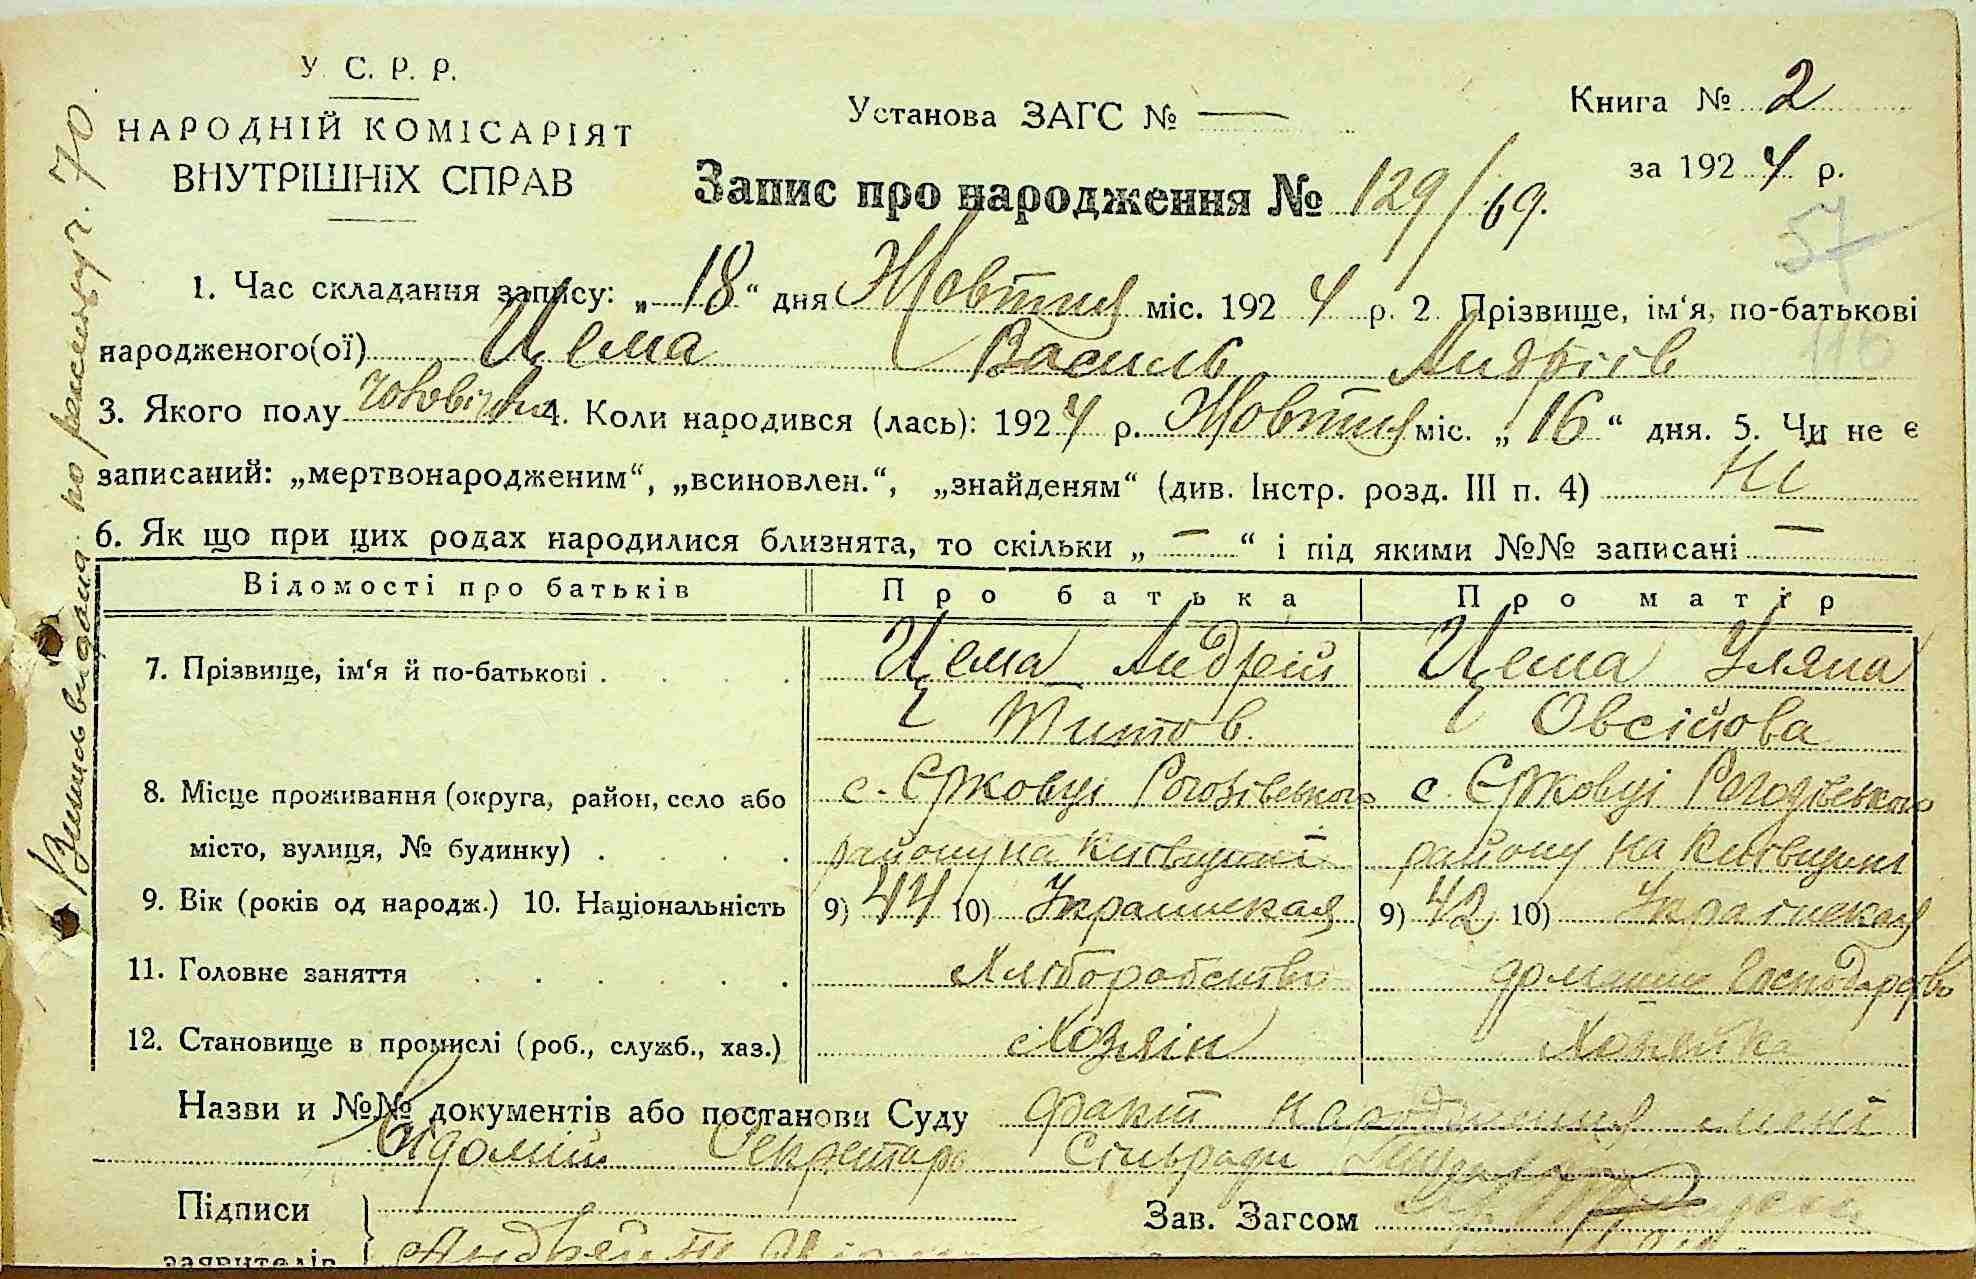 У. С. Р. Р.
НАРОДНІЙ КОМІСАРІЯТ
ВНУТРІШНІХ СПРАВ
Установа ЗАГС № —
Книга № 2
за 1924 р.
Запис про народження № 129/69.
57
116
1. Час складання запису: „18“ дня Жовтня міс. 1924 р. 2. Прізвище, ім‘я, по-батькові
народженого(ої) Цема Василь Андріїв
3. Якого полу чоловічої 4. Коли народився (лась): 1924 р. Жовтня міс. „16“ дня. 5. Чи не є
записаний: „мертвонародженим“, „всиновлен.“, „знайденям“ (див. Інстр. розд. III п. 4) Ні
6. Як що при цих родах народилися близнята, то скільки „—“ і під якими №№ записані —
Відомості про батьків Про батька Про матір
7. Прізвище, ім‘я й по-батькові . . . . Цема Андрій Цема Уляна
Титов. Овсійова
8. Місце проживання (округа, район, село або с. Єрковці Рогозівського с. Єрковці Рогозівського
місто, вулиця, № будинку) . . . . району на Київщині району на Київщині
9. Вік (років од народж.) 10. Національність 9) 44 10) Українская 9) 42 10) Українская
11. Головне заняття . . . . . . Хліборобство домашнє Господарство
12. Становище в промислі (роб., служб., хаз.) Хозяїн Хозяйка
Назви и №№ документів або постанови Суду факт народження мені
Відомий Секретарь Сільради
Підписи
заявителів
Зав. Загсом
Андрей
Випись видана по реєстру ч. 70.